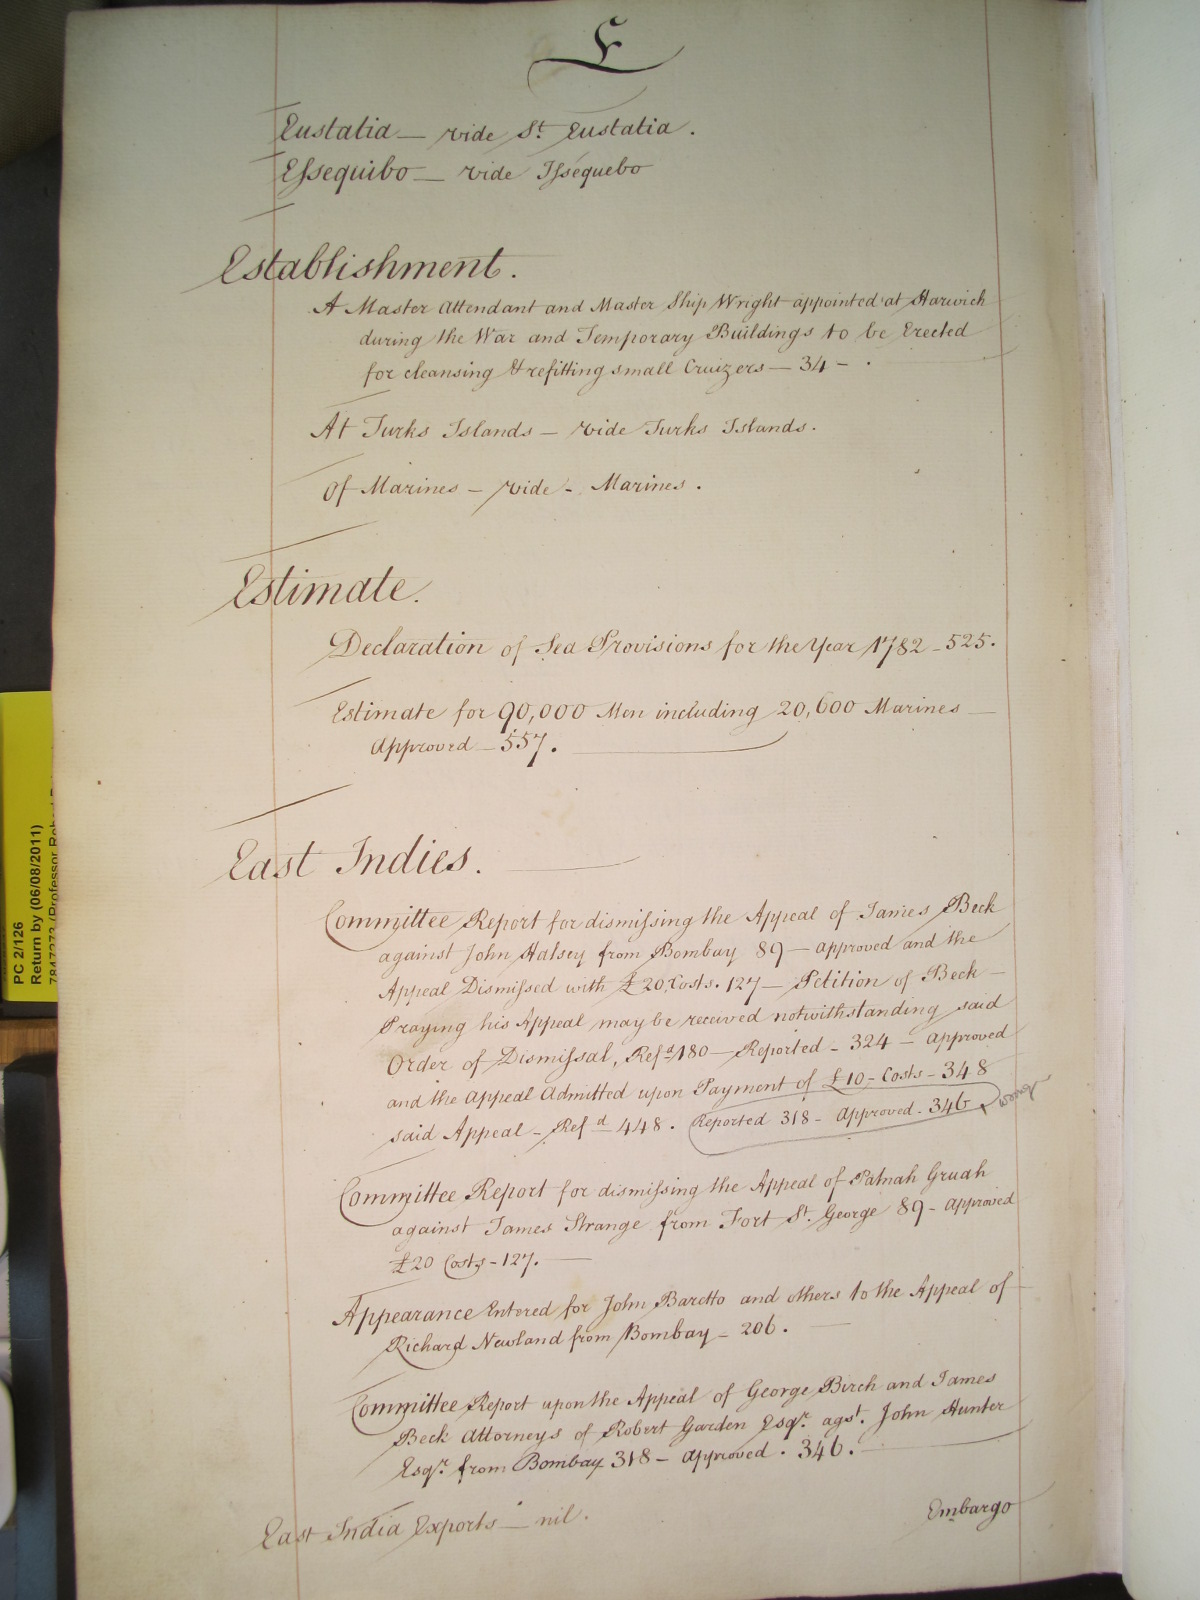 E
Eustatia — vide St. Eustatia.
Essequibo — vide Issequebo
Establishment.
A Master Attendant and Master Ship Wright appointed at Harwich
during the War and Temporary Buildings to be Erected
for cleansing & refitting small Cruizers — 34 - .
At Turks Islands — vide Turks Islands.
Of Marines - vide - Marines.
Estimate.
Declaration of Sea Provisions for the Year 1782 - 525.
Estimate for 90,000 Men including 20,600 Marines —
Approved — 557.
East Indies.
Committee Report for dismissing the Appeal of James Beck
against John Halsey from Bombay 89 — approved and the
Appeal Dismissed with £20 Costs. 127 — Petition of Beck —
Praying his Appeal may be received notwithstanding said
Order of Dismissal, Refd 180 — Reported - 324 — approved
and the Appeal Admitted upon Payment of £10 - Costs - 348
said Appeal - Refd 448. Reported 318 - Approved - 346 wrong
Committee Report for dismissing the Appeal of Patnah Gruah
against James Strange from Fort St. George 89 - approved
£20 Costs - 127. —
Appearance Entered for John Baretto and others to the Appeal of
Richard Newland from Bombay - 206. —
Committee Report upon the Appeal of George Birch and James
Beck Attorneys of Robert Garden Esqr. agst. John Hunter
Esqr. from Bombay 318 - approved . 346. —
East India Exports — nil.
Embargo
PC 2/126
Return by (06/08/2011)